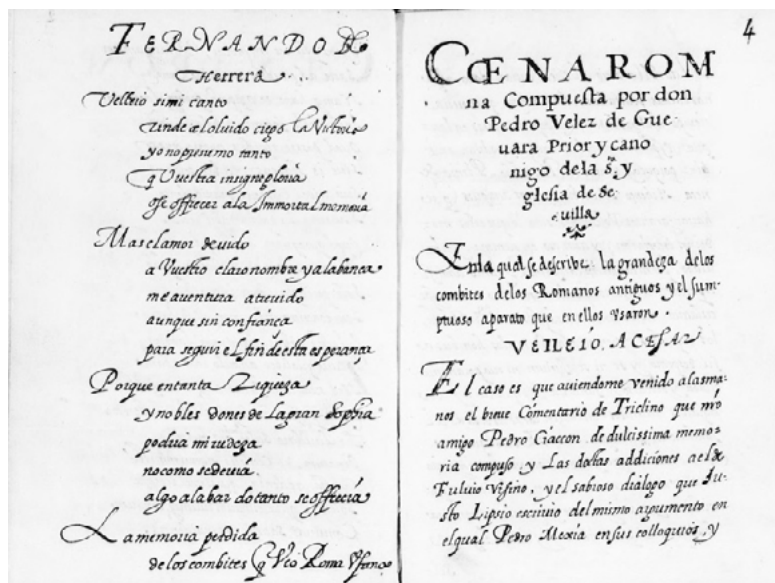 FERNANDO DE
Herrera
Velleio si mi canto
rinde al oluido ciego la Victoria
yo no presumo tanto
q̃ Vuestra insigne gloria
ose offrecer a la Immortal memoria
Mas el amor deuido
a Vuestro claro nombre y alabança
me aventura atrevido
aunque sin confiança
para seguir el fin de esta esperança
Porque en tanta Riqueza
y nobles dones de la gran Sophia
podria mi rudeza
no como se devia
algo alabar do tanto se offrecia
La memoria perdida
de los combites q̃ Vio Roma Vfana
4
CŒNA ROM
na Compuesta por don
Pedro Velez de Gue
uara Prior y cano
nigo de la s.ta y
glesia de Se
uilla
En la qual se describe la grandeza de los
combites de los Romanos antiguos y el sum-
ptuoso aparato que en ellos vsaron.
VELLEIO, A CESAR
El caso es que auiendome venido a las ma-
nos el breve Comentario de Triclino que nrõ
amigo Pedro Ciaccon de dulcissima memo-
ria compuso, y Las doctas addiciones a el de
Fuluio Vrsino, y el sabroso dialogo que Ju-
sto Lipsio escriuio del mismo argumento en
el qual Pedro Mexia en sus colloquios, y